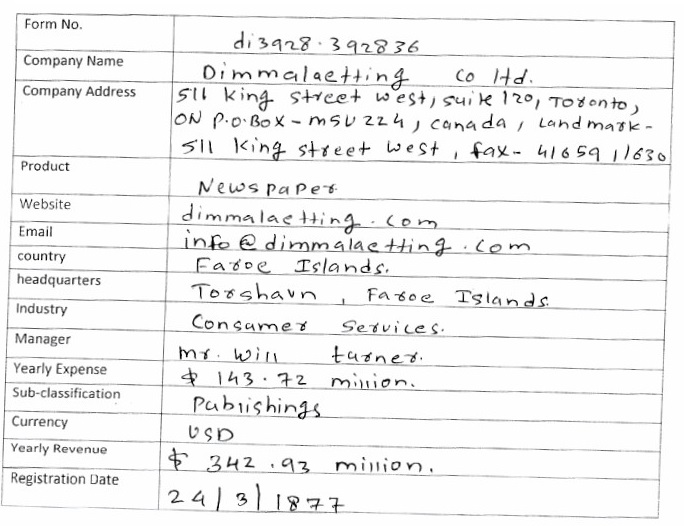 Form No.
di3928.392836
Company Name
Dimmalaetting Co ltd.
Company Address
511 King street west, suite 120, Toronto,
ON P.O.BOX - M5V 2Z4, Canada, Landmark -
511 King street west, fax - 4165911630
Product
Newspaper
Website
dimmalaetting.com
Email
info@dimmalaetting.com
country
Faroe Islands.
headquarters
Torshavn, Faroe Islands.
Industry
Consumer Services.
Manager
mr. Will turner.
Yearly Expense
$ 143.72 million.
Sub-classification
Publishings
Currency
USD
Yearly Revenue
$ 342.93 million.
Registration Date
24/3/1877